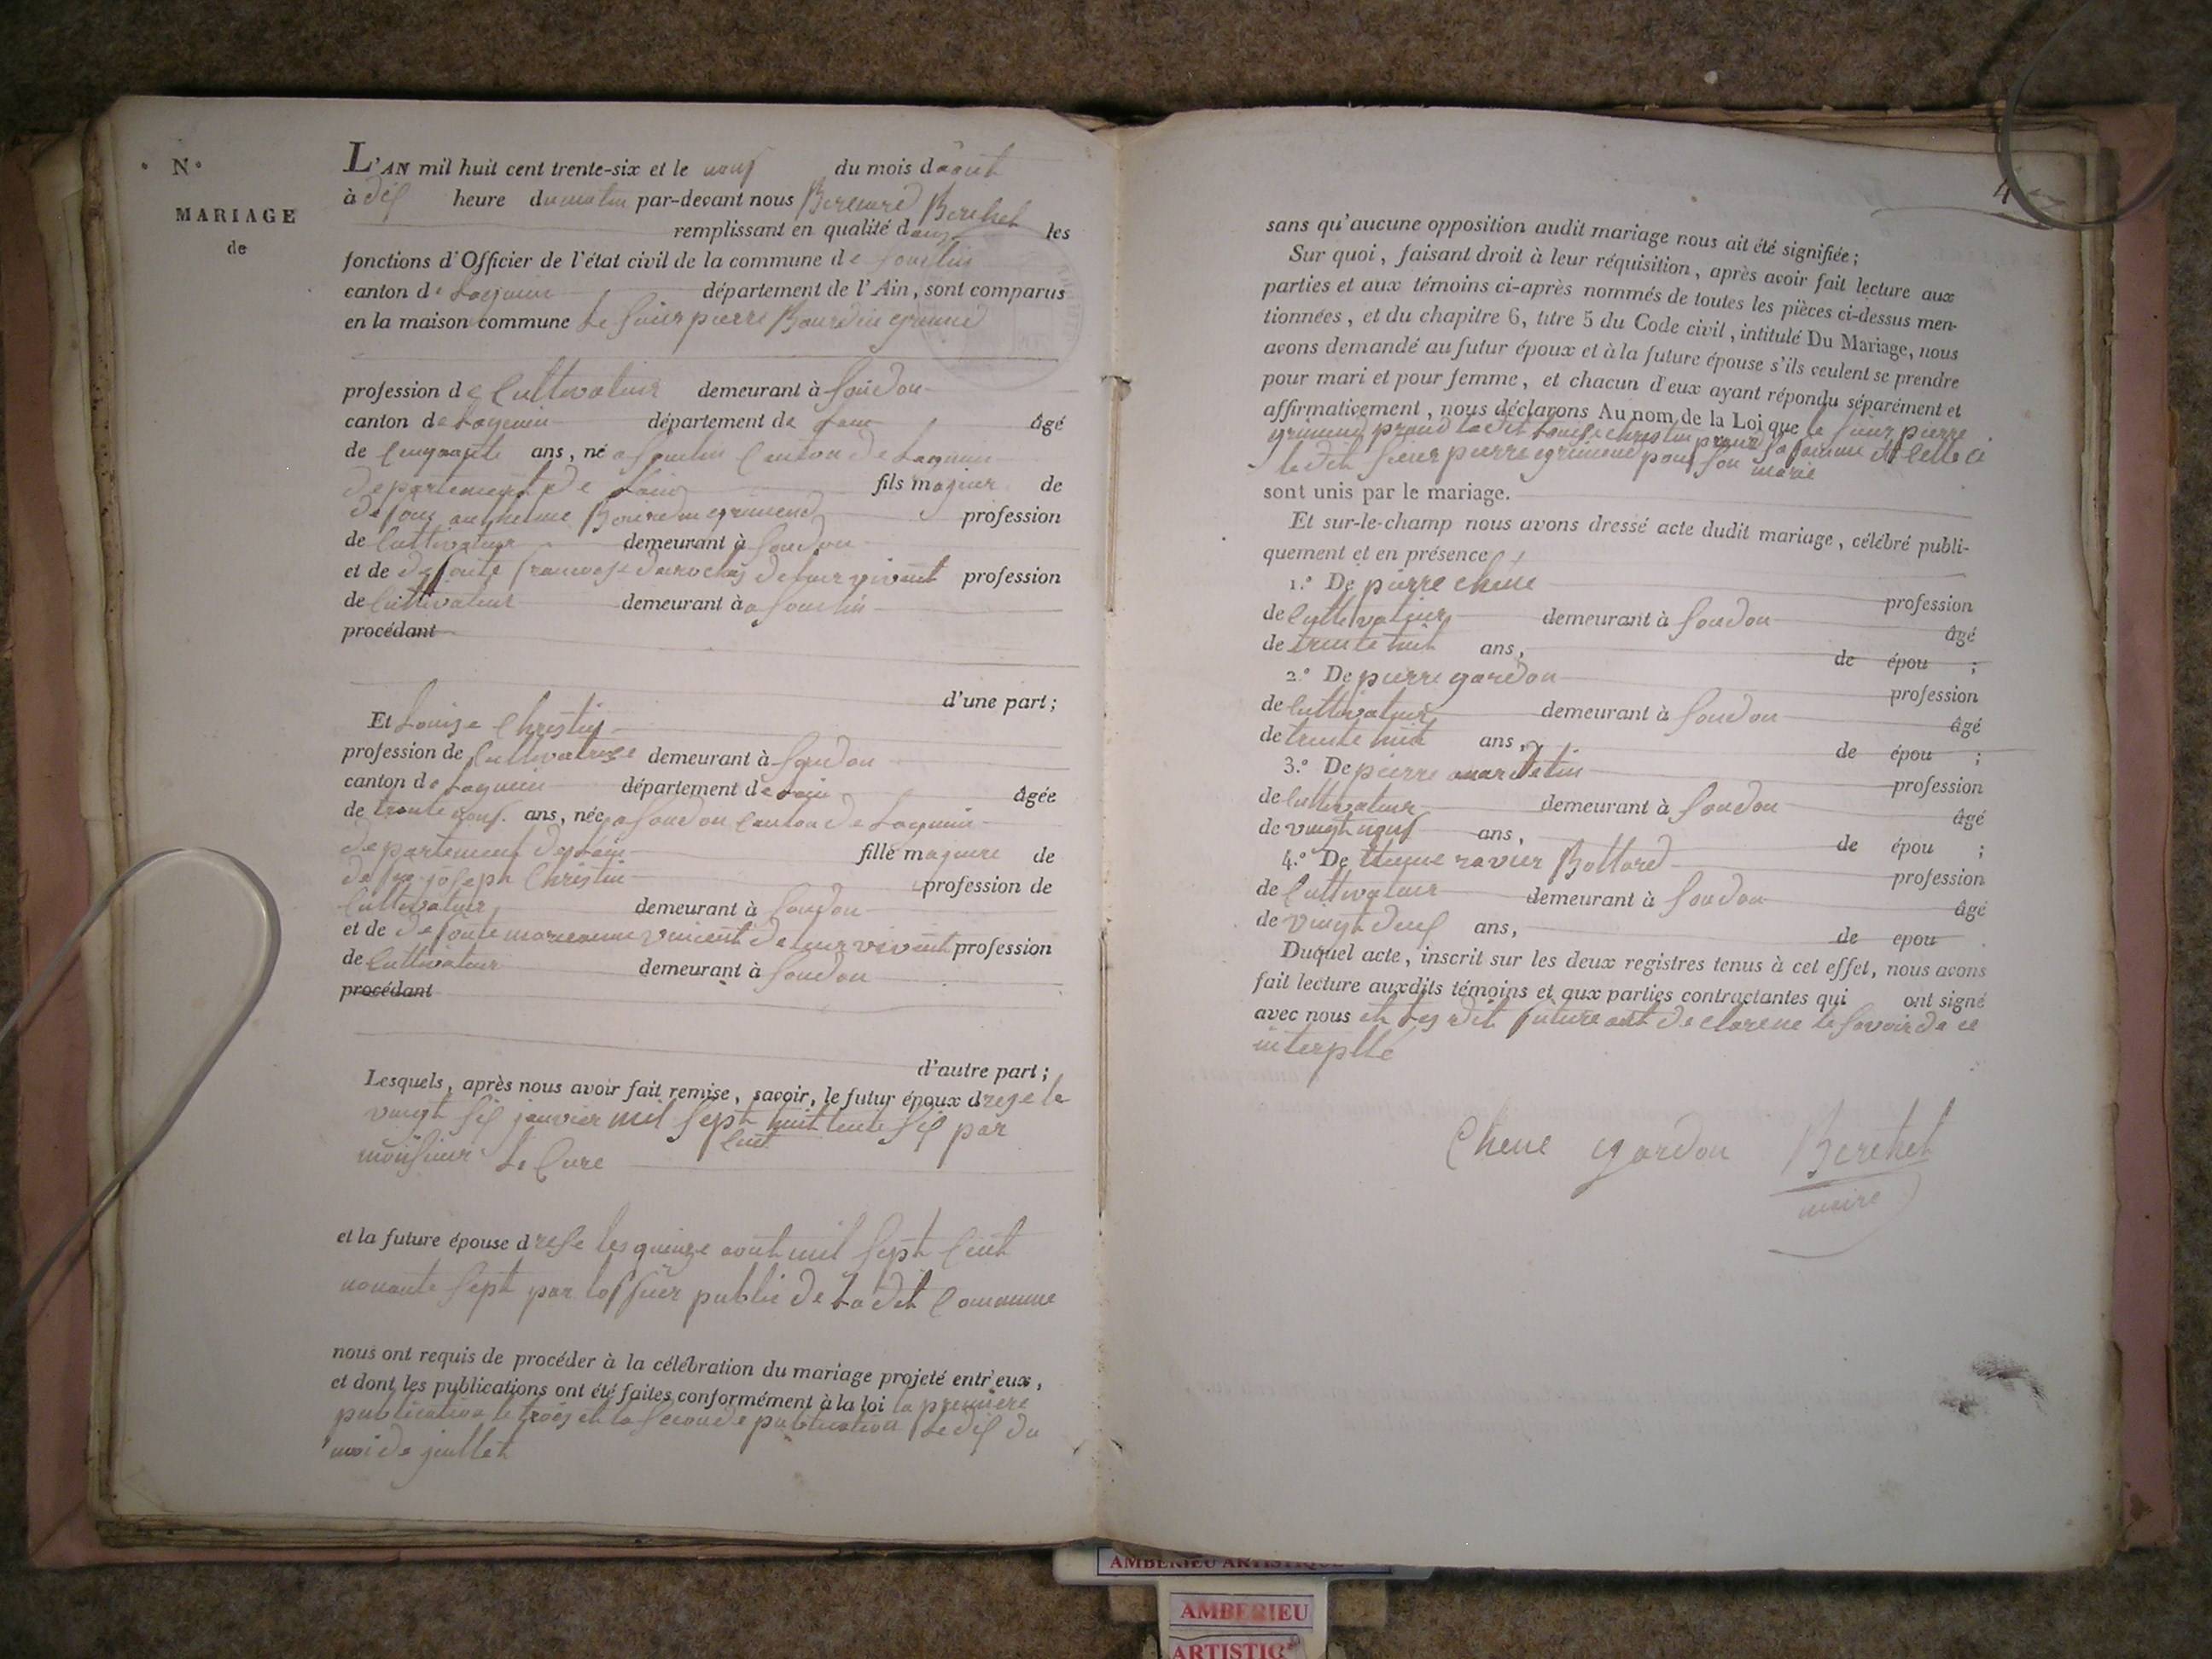 N°
MARIAGE
de
L'AN mil huit cent trente-six et le neuf du mois daout
à dix heure du matin par-devant nous Bernard Berchet
remplissant en qualité d les
fonctions d'Officier de l'état civil de la commune de Souclin
canton de Lagnieu département de l'Ain, sont comparus
en la maison commune Le sieur pierre Bourdin grimend
profession de Cultivateur demeurant à Soudon
canton de Lagnieu département de Lain âgé
de Cinquante ans, né a Souclin Canton de Lagnieu
departement de Lain fils majeur de
defont anthelme Bourdin grimend profession
de Cultivateur demeurant à Soudon
et de defonte francoise de leur vivant profession
de Cultivateur demeurant à a Souclin
procédant
d'une part;
Et Louise Christin
profession de Cultivatrise demeurant à Soudon
canton de Lagnieu département de Lain âgée
de trante neuf ans, née a Soudon Canton de Lagnieu
departement de Lain fille majeure de
de joseph Christin profession de
Cultivateur demeurant à Soudon
et de defonte marianne vincent de leur vivant profession
de Cultivateur demeurant à Soudon
procédant
d'autre part;
Lesquels, après nous avoir fait remise, savoir, le futur époux d le
vingt six janvier mil sept huitente six par
Cent
monsieur Le Cure
et la future épouse d les quinze aout mil sept Cent
nonante sept par loffsier public de La dit Commune
nous ont requis de procéder à la célébration du mariage projeté entr'eux,
et dont les publications ont été faites conformément à la loi la premiere
publication le trois et la seconde publication le dix du
moi de juillet
4
sans qu'aucune opposition audit mariage nous ait été signifiée;
Sur quoi, faisant droit à leur réquisition, après avoir fait lecture aux
parties et aux témoins ci-après nommés de toutes les pièces ci-dessus men-
tionnées, et du chapitre 6, titre 5 du Code civil, intitulé Du Mariage, nous
avons demandé au futur époux et à la future épouse s'ils veulent se prendre
pour mari et pour femme, et chacun d'eux ayant répondu séparément et
affirmativement, nous déclarons Au nom de la Loi que le sieur pierre
grimend prand la dit Louise christin pour sa famme et celle ci
le dit sieur pierre grimend pour son marie
sont unis par le mariage.
Et sur-le-champ nous avons dressé acte dudit mariage, célébré publi-
quement et en présence
1.° De pierre chene profession
de Cultivateur demeurant à Soudon âgé
de trente huit ans, de épou ;
2.° De pierre gardon profession
de Cultivateur demeurant à Soudon âgé
de trente huit ans, de épou ;
3.° De pierre profession
de Cultivateur demeurant à Soudon âgé
de vingt neuf ans, de épou ;
4.° De ravier Bottard profession
de Cultivateur demeurant à Soudon âgé
de vingt deux ans, de epou
Duquel acte, inscrit sur les deux registres tenus à cet effet, nous avons
fait lecture auxdits témoins et aux parties contractantes qui ont signé
avec nous et Les dit future ont declarene le savoir de ce
interplle
Chene gardon Berchet
maire
AMBERIEU ARTISTIQUE
AMBERIEU
ARTISTIQ